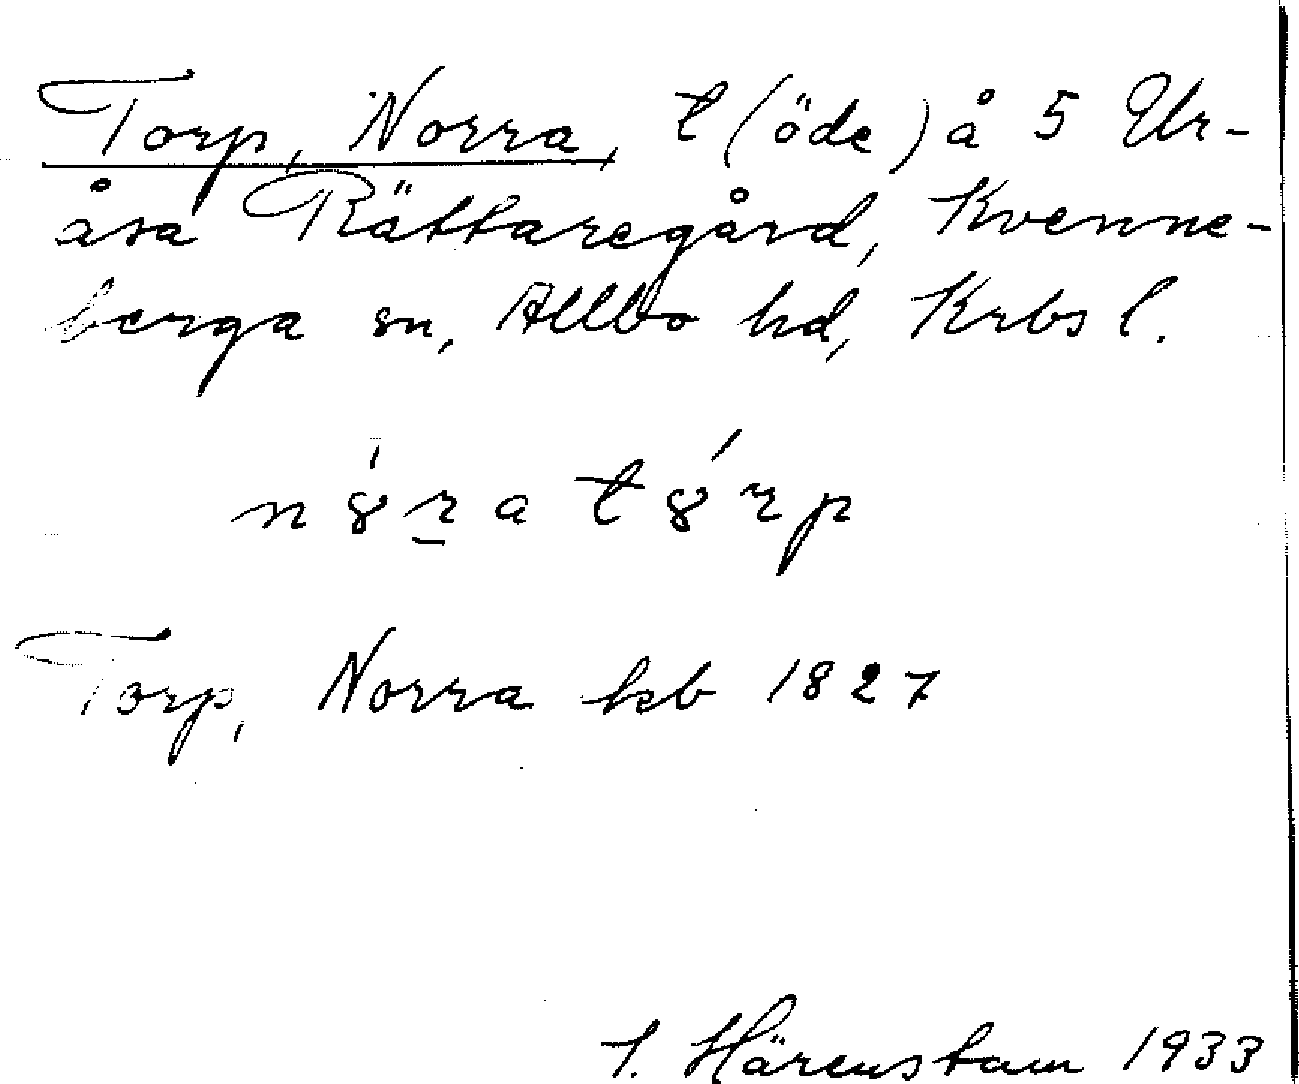 Torp, Norra, t (öde) å 5 Ur-
åsa Rättaregård, Kvenne-
berga sn, Allbo hd, Krbs l.
nȣ́r̲a tȣ́rp
Torp, Norra kb 1827
Härenstam 1933